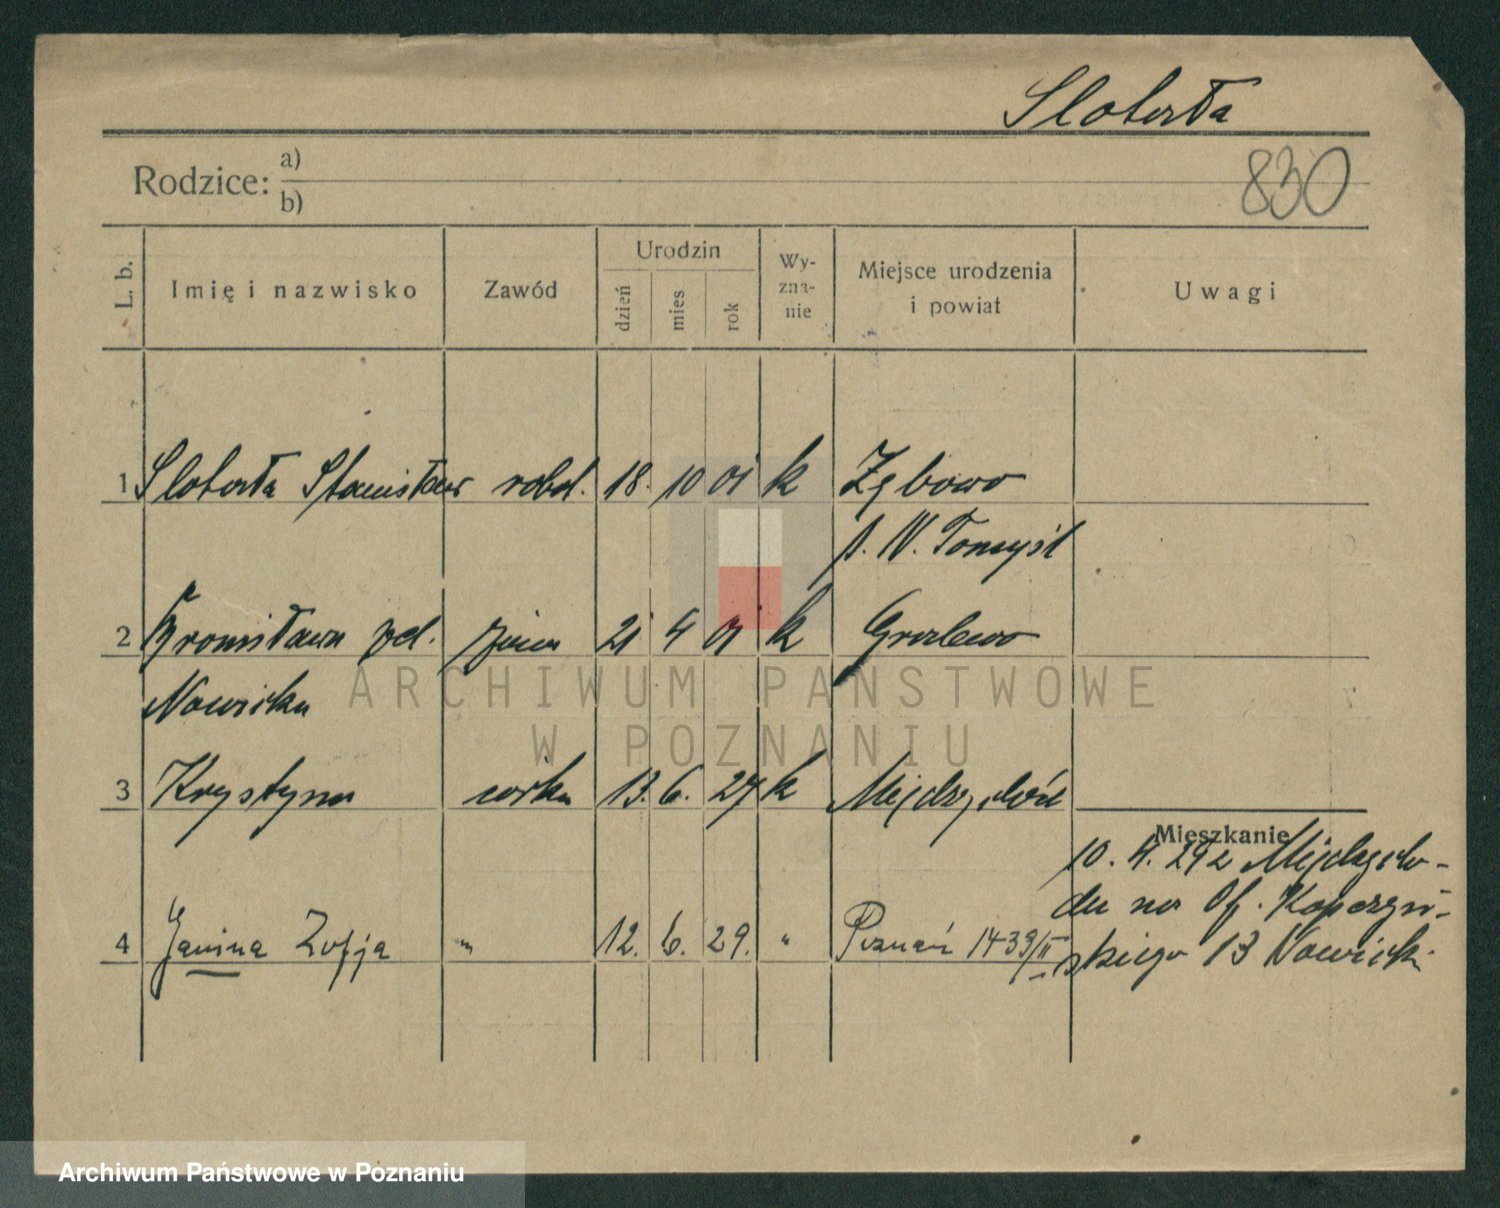 Sloterła
Rodzice: a)
b)
830
L. b. Imię i nazwisko Zawód Urodzin dzień mies rok Wy-zna-nie Miejsce urodzenia i powiat Uwagi
1 Sloterła Stanisław robot. 18. 10 01 k Zębowo
p. N. Tomyśl
2 Bronisława zd. żona 21 4 01 k
Nowicka
3 Krystyna córka 13. 6. 27 k Międzychód
Mieszkanie
10. 4. 29 z Międzycho-
du na
4 Janina Zofja " 12. 6. 29. " Poznań 1439/II
skiego 13 Nowicki
ARCHIWUM PAŃSTWOWE
W POZNANIU
Archiwum Państwowe w Poznaniu